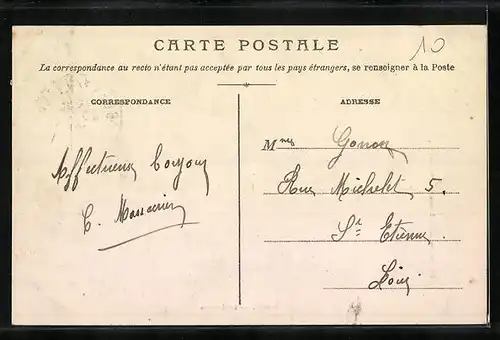 CARTE POSTALE
10
La correspondance au recto n'étant pas acceptée par tous les pays étrangers, se renseigner à la Poste
CORRESPONDANCE
Affectueux bonjour
ADRESSE
Mmes Gonon
Rue Michelet 5.
St Etienne
Loire